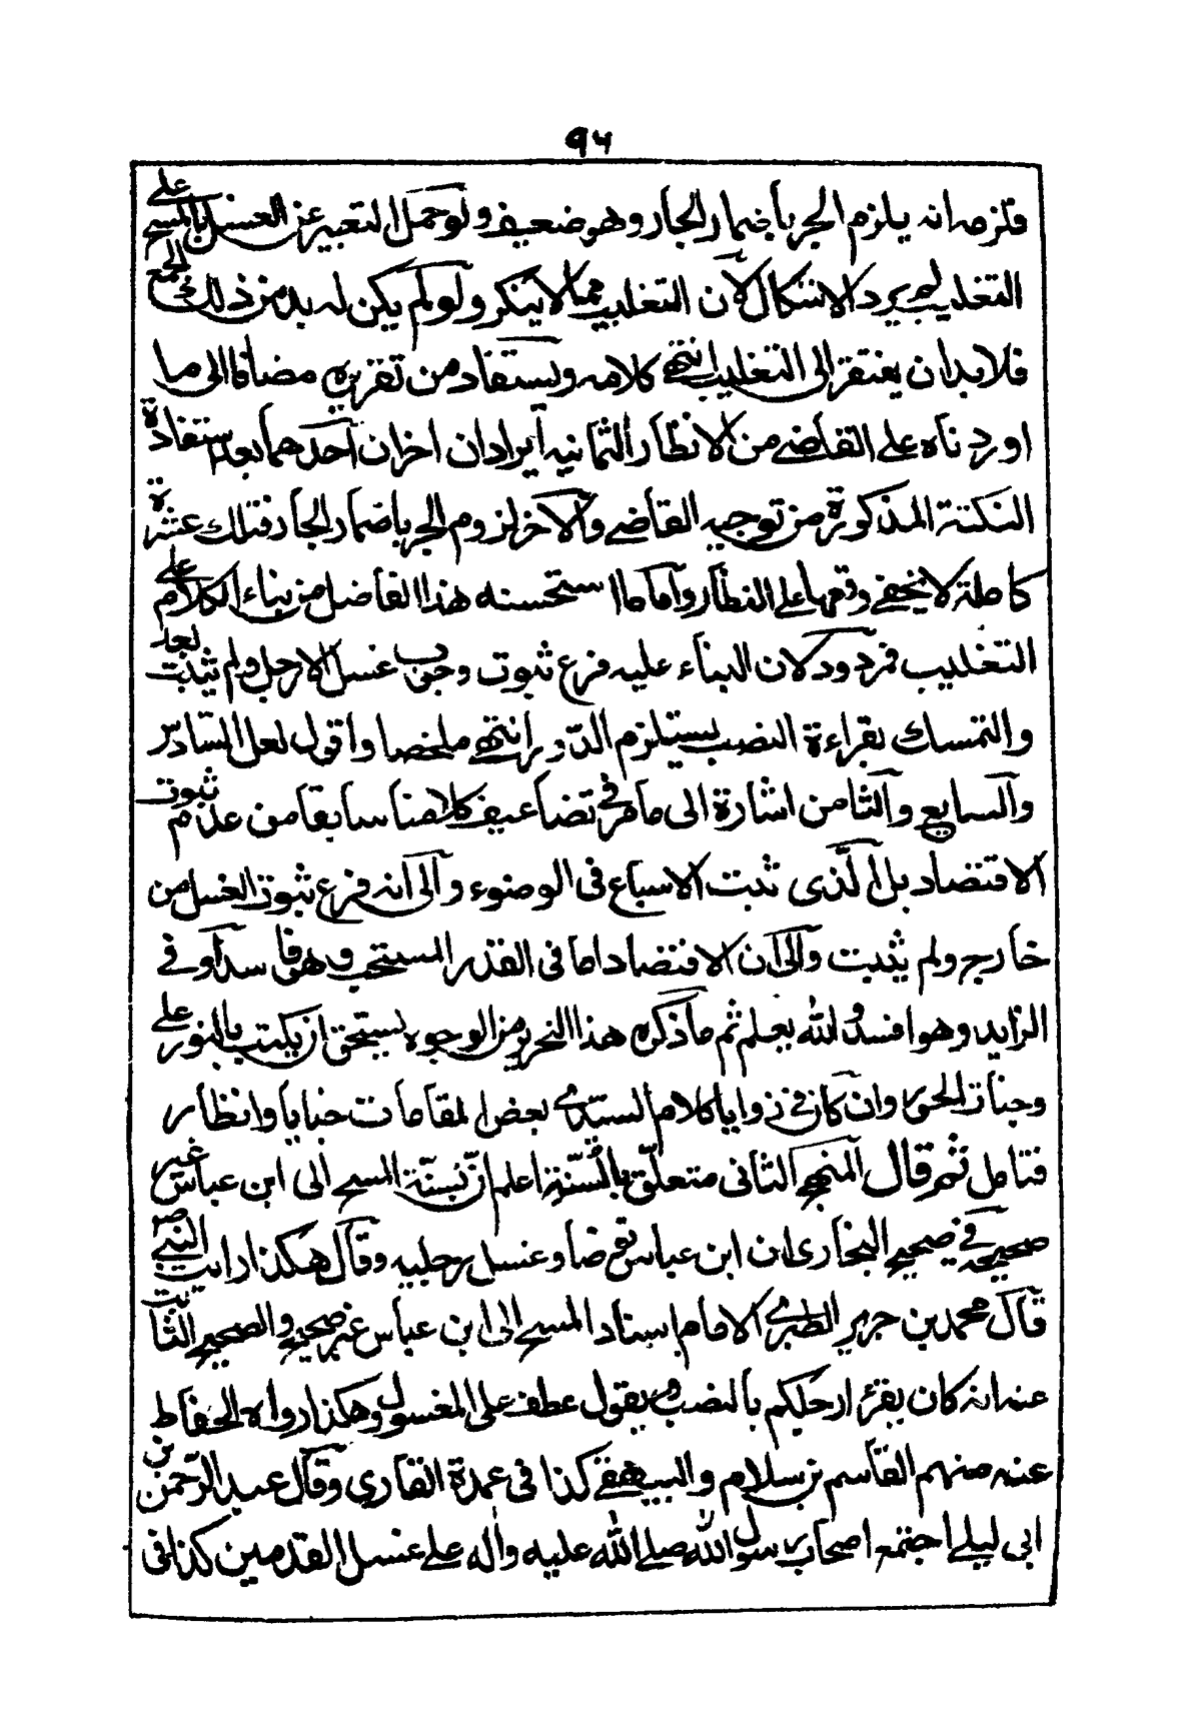 ٩٦
فلزمه انه يلزم الجر باضمار الجار وهو ضعيف ولو حمل التعبير عن الغسل بالمسح على
التغليب لم يرد الاشكال لان التغليب مما لا ينكر ولو لم يكن له بد من ذلك الجمع
فلا بد ان يفتقر الى التغليب انتهى كلامه ويستفاد من تقريره مضافا الى ما
اوردناه على القاضى من الانظار الثمانية ايرادان اخران احدهما بعد استفادة
النكتة المذكورة من توجيه القاضى والاخر لزوم الجر باضمار الجار فتلك عشرة
كاملة لا يخفى وقعها على النظار واما ما استحسنه هذا الفاضل من بناء الكلام على
التغليب فمردود لان البناء عليه فرع ثبوت وجوب غسل الارجل ولم يثبت بعد
والتمسك بقراءة النصب يستلزم الدور انتهى ملخصا واقول لعل السادس
والسابع والثامن اشارة الى ما مر فى تضاعيف كلامنا سابقا من عدم ثبوت
الاقتصاد بل الذى ثبت الاسباغ فى الوضوء والى انه فرع ثبوت الغسل من
خارج ولم يثبت والى ان الاقتصاد اما فى القدر المستحب وهو فاسد او فى
الزايد وهو افسد والله يعلم ثم ما ذكره هذا النحرير من الوجوه يستحق ان يكتب بالنور على
وجنات الحور وان كان فى زوايا كلام السيد فى بعض المقامات خبايا وانظار
فتامل ثم قال المنهج الثانى متعلق بالسنة اعلم ان نسبة المسح الى ابن عباس غير
صحيحة فى صحيح البخارى ان ابن عباس توضا وغسل رجليه وقال هكذا رايت النبى ص
قال محمد بن جرير الطبرى الامام اسناد المسح الى ابن عباس غير صحيح والصحيح الثابت
عنه انه كان يقرئ ارجلكم بالنصب ويقول عطف على المغسول وهكذا رواه الحفاظ
عنه منهم القاسم بن سلام والبيهقى كذا فى عمدة القارى وقال عبد الرحمن بن
ابى ليلى اجتمع اصحاب رسول الله صلى الله عليه واله على غسل القدمين كذا فى